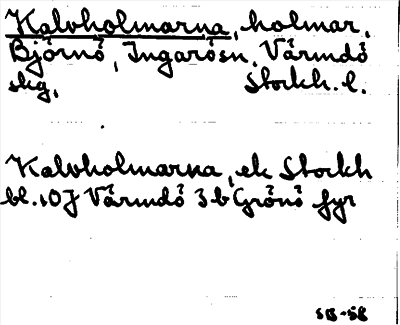 Kalvholmarna, holmar,
Björnö, Ingarösn, Värmdö
skg, Stockh. l.
Kalvholmarna, ek Stockh
bl. 10J Värmdö 3b Grönö fyr
SB-58